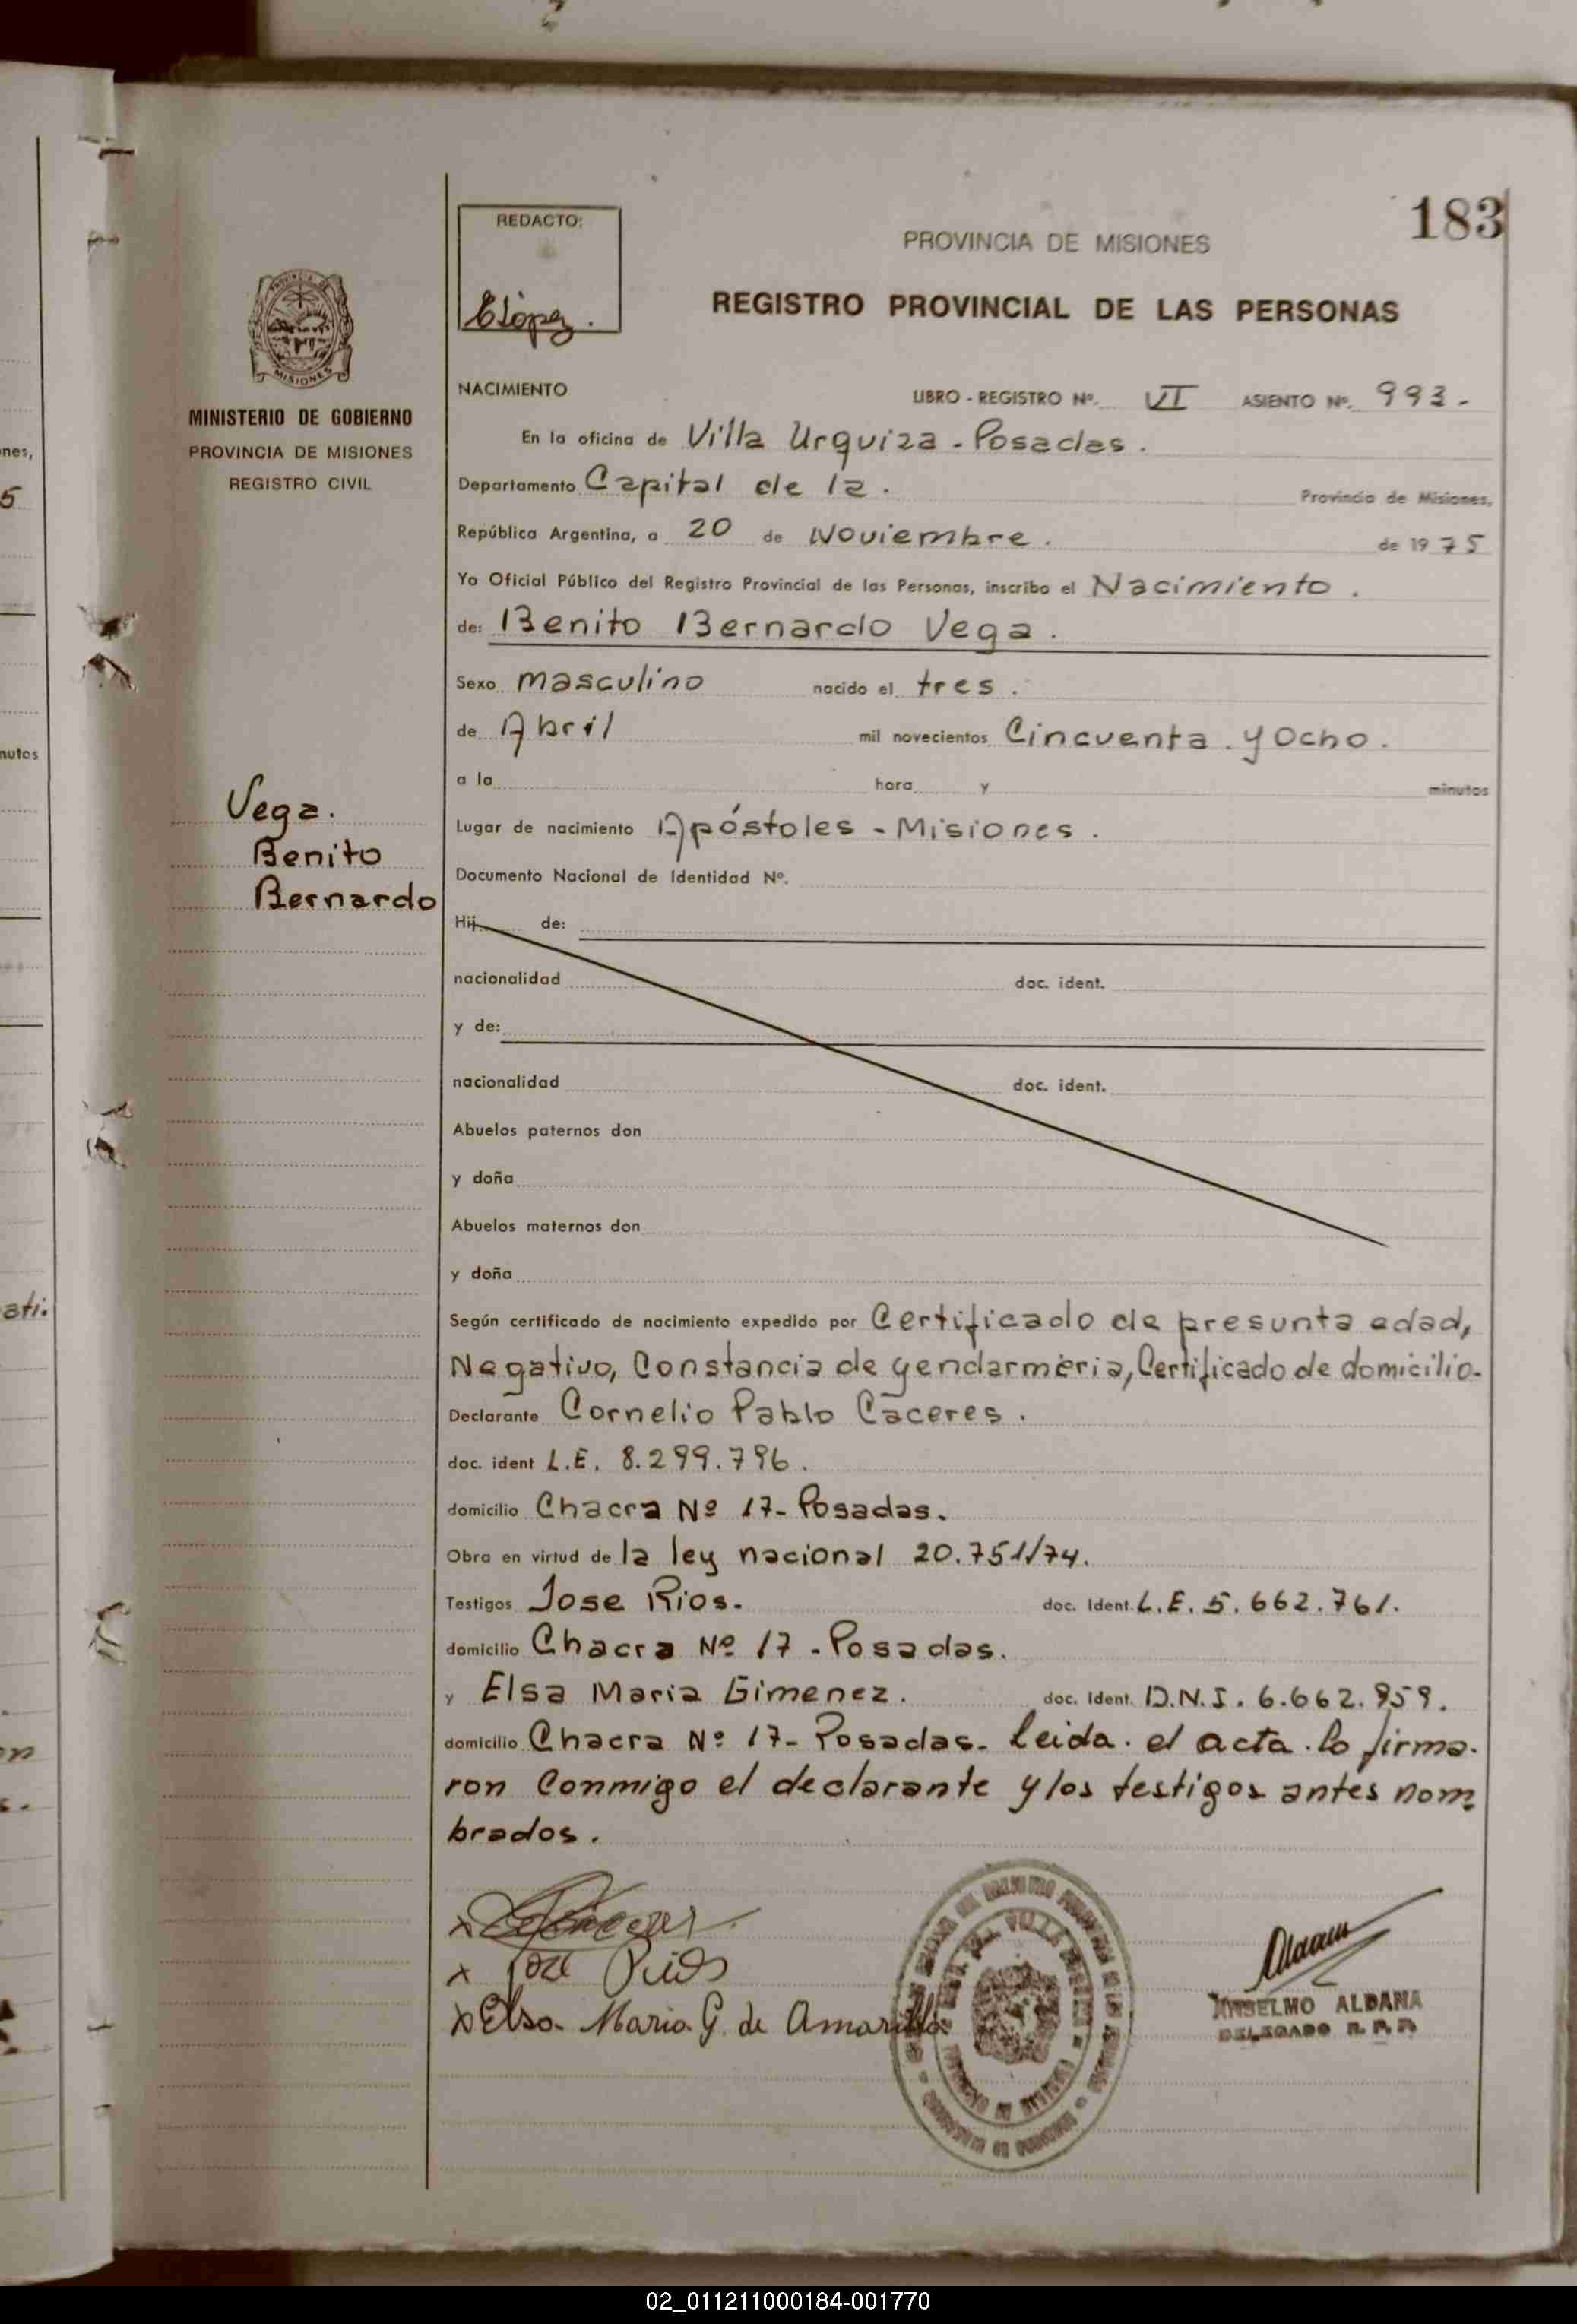 183
REDACTO:
ELópez.
PROVINCIA DE MISIONES
REGISTRO PROVINCIAL DE LAS PERSONAS
MISIONES
MINISTERIO DE GOBIERNO
PROVINCIA DE MISIONES
REGISTRO CIVIL
NACIMIENTO LIBRO - REGISTRO Nº. VI ASIENTO Nº. 993-
En la oficina de Villa Urquiza - Posadas.
Departamento Capital de la. Provincia de Misiones,
República Argentina, a 20 de Noviembre. de 1975
Yo Oficial Público del Registro Provincial de las Personas, inscribo el Nacimiento.
de: Benito Bernardo Vega.
Sexo masculino nacido el tres.
de Abril mil novecientos Cincuenta y Ocho.
a la hora y minutos
Vega.
Benito
Bernardo
Lugar de nacimiento Apóstoles - Misiones.
Documento Nacional de Identidad Nº.
Hij de:
nacionalidad doc. ident.
y de:
nacionalidad doc. ident.
Abuelos paternos don
y doña
Abuelos maternos don
y doña
Según certificado de nacimiento expedido por Certificado de presunta edad,
Negativo, Constancia de gendarmeria, Certificado de domicilio-
Declarante Cornelio Pablo Caceres.
doc. ident L.E. 8.299.796.
domicilio Chacra Nº 17- Posadas.
Obra en virtud de la ley nacional 20.751/74.
Testigos Jose Rios. doc. Ident. L.E. 5.662.761.
domicilio Chacra Nº 17 - Posadas.
y Elsa Maria Gimenez. doc. Ident. D.N.I. 6.662.959.
domicilio Chacra Nº 17- Posadas- leida. el acta. lo firma-
ron conmigo el declarante y los testigos antes nom
brados.
x
x José Rios
x Elsa Maria G. de Amarilla
ANSELMO ALDANA
DELEGADO R. P. P.
nes,
5
nutos
02_011211000184-001770